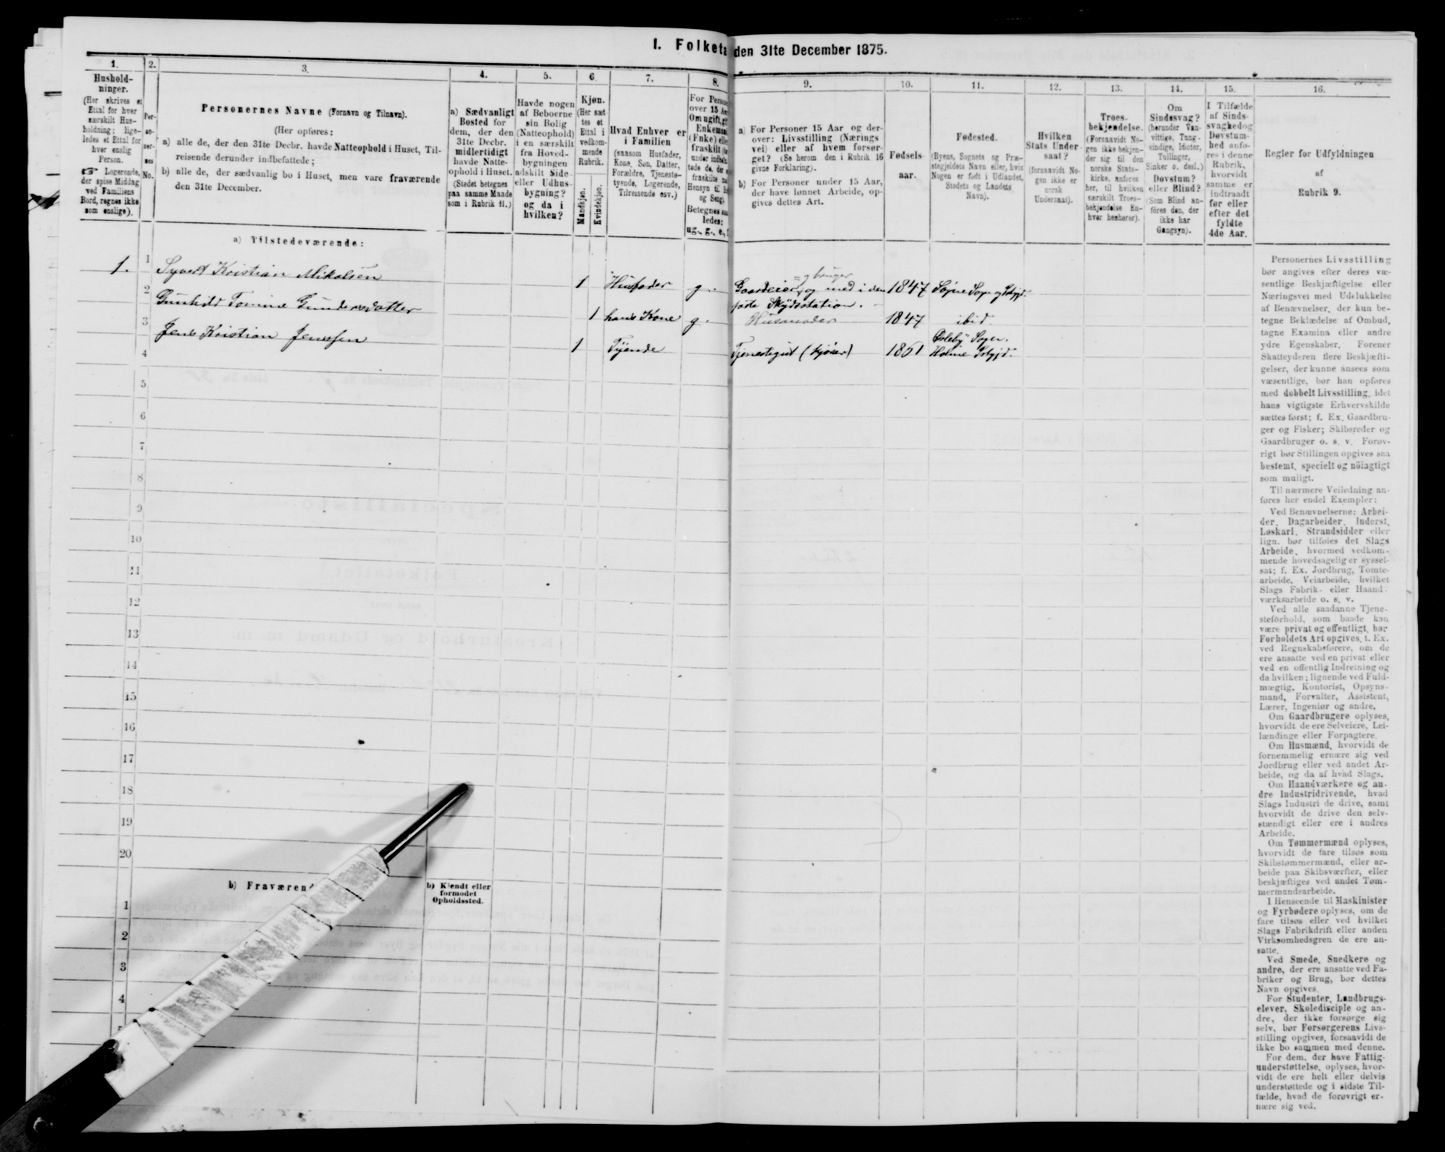 I. Folketa den 31te December 1875.
1.
Hushold-
ninger.
(Her skrives et
Ettal for hver
særskilt Hus-
holdning; lige-
ledes et Ettal for
hver enslig
Person.
Logerende,
der spise Middag
ved Familiens
Bord, regnes ikke
som enslige).
2.
Per-
so-
ner-
nes
No.
3.
Personernes Navne (Fornavn og Tilnavn).
(Her opføres:
a) alle de, der den 31te Decbr. havde Natteophold i Huset, Til-
reisende derunder indbefattede;
b) alle de, der sædvanlig bo i Huset, men vare fraværende
den 31te December.
4.
a) Sædvanligt
Bosted for
dem, der den
31te Decbr.
midlertidigt
havde Natte-
ophold i Huset.
(Stedet betegnes
paa samme Maade
som i Rubrik 11.)
5.
Havde nogen
af Beboerne
sin Bolig
(Natteophold)
i en særskilt
fra Hoved-
bygningen
adskilt Side-
eller Udhus-
bygning?
og da i
hvilken?
6.
Kjøn.
(Her sæt-
tes et
Ettal i
vedkom-
mende
Rubrik.)
Mandkjøn.
Kvindekjøn.
7.
Hvad Enhver er
i Familien
(saasom Husfader,
Kone, Søn, Datter,
Forældre, Tjeneste-
tyende, Logerende,
Tilreisende osv.)
8.
For Person
over 15 Aar
Om ugift, gi
Enkeman
(Enke) elle
fraskilt
Betegnes saa-
ledes:
ug., g., e., f.
9.
a) For Personer 15 Aar og der-
over: Livsstilling (Nærings-
vei) eller af hvem forsør-
get? (Se herom den i Rubrik 16
givne Forklaring).
b) For Personer under 15 Aar,
der have lønnet Arbeide, op-
gives dettes Art.
10.
Fødsels-
aar.
11.
Fødested.
(Byens, Sognets og Præ-
stegjeldets Navn eller, hvis
Nogen er født i Udlandet,
Stedets og Landets
Navn).
12.
Hvilken
Stats Under-
saat?
(forsaavidt No-
gen ikke er
norsk
Undersaat).
13.
Troes-
bekjendelse.
(Forsaavidt No-
gen ikke bekjen-
der sig til den
norske Stats-
kirke, anføres
her, til hvilken
særskilt Troes-
bekjendelse En-
hver henhører).
14.
Om
Sindssvag?
(herunder Van-
vittige, Tung-
sindige, Idioter,
Tullinger,
Sinker o. desl.)
Døvstum?
eller Blind?
(Som Blind an-
føres den, der
ikke har
Gangsyn).
15.
I Tilfælde
af Sinds-
svaghed og
Døvstum-
hed anfø-
res i denne
Rubrik,
hvorvidt
samme er
indtraadt
før eller
efter det
fyldte
4de Aar.
16.
Regler for Udfyldningen
af
Rubrik 9.
a) Tilstedeværende:
1. 1 Syvert Kristian Mikalsen 1 Husfader g. Gaardeier og bruger og med i den 1847 Søgne Sogn og Prstgjd.
første Skydsstation.
2 Gunhild Tomine Gundersdatter 1 hans Kone g. Husmoder 1847 ibid.
3 Jens Kristian Jenssen 1 Tyende Tjenestegut (kjører) 1861 Holme Prstgjd.
4
5
6
7
8
9
10
11
12
13
14
15
16
17
18
19
20
b) Fraværend
b) Kjendt eller
formodet
Opholdssted.
1
2
3
4
5
Personernes Livsstilling
bør angives efter deres væ-
sentlige Beskjæftigelse eller
Næringsvei med Udelukkelse
af Benævnelser, der kun be-
tegne Beklædelse af Ombud,
tagne Examina eller andre
ydre Egenskaber. Forener
Skatteyderen flere Beskjæfti-
gelser, der kunne ansees som
væsentlige, bør han opføres
med dobbelt Livsstilling, idet
hans vigtigste Erhvervskilde
sættes først; f. Ex. Gaardbru-
ger og Fisker; Skibsreder og
Gaardbruger o. s. v. Forøv-
rigt bør Stillingen opgives saa
bestemt, specielt og nöiagtigt
som muligt.
Til nærmere Veiledning an-
føres her endel Exempler:
Ved Benævnelserne: Arbei-
der, Dagarbeider, Inderst,
Løskarl, Strandsidder eller
lign. bør tilføies det Slags
Arbeide, hvormed vedkom-
mende hovedsagelig er syssel-
sat; f. Ex. Jordbrug, Tomte-
arbeide, Veiarbeide, hvilket
Slags Fabrik- eller Haand-
værksarbeide o. s. v.
Ved alle saadanne Tjene-
steforhold, som baade kan
være privat og offentligt, bør
Forholdets Art opgives, t. Ex.
ved Regnskabsførere, om de
ere ansatte ved en privat eller
ved en offentlig Indretning og
da hvilken; lignende ved Fuld-
mægtig, Kontorist, Opsyns-
mand, Forvalter, Assistent,
Lærer, Ingeniør og andre.
Om Gaardbrugere oplyses,
hvorvidt de ere Selveiere, Lei-
lændinge eller Forpagtere.
Om Husmænd, hvorvidt de
fornemmelig ernære sig ved
Jordbrug eller ved andet Ar-
beide, og da af hvad Slags.
Om Haandværkere og an-
dre Industridrivende, hvad
Slags Industri de drive, samt
hvorvidt de drive den selv-
stændigt eller ere i andres
Arbeide.
Om Tømmermænd oplyses,
hvorvidt de fare tilsøs som
Skibstømmermænd, eller ar-
beide paa Skibsværfter, eller
beskjæftiges ved andet Tøm-
mermandsarbeide.
I Henseende til Maskinister
og Fyrbødere oplyses, om de
fare tilsøs eller ved hvilket
Slags Fabrikdrift eller anden
Virksomhedsgren de ere an-
satte.
Ved Smede, Snedkere og
andre, der ere ansatte ved Fa-
briker og Brug, bør dettes
Navn opgives.
For Studenter, Landbrugs-
elever, Skoledisciple og an-
dre, der ikke forsørge sig
selv, bør Forsørgerens Livs-
stilling opgives, forsaavidt de
ikke bo sammen med denne.
For dem, der have Fattig-
understøttelse, oplyses, hvor-
vidt de ere helt eller delvis
understøttede og i sidste Til-
fælde, hvad de forøvrigt er-
nære sig ved.